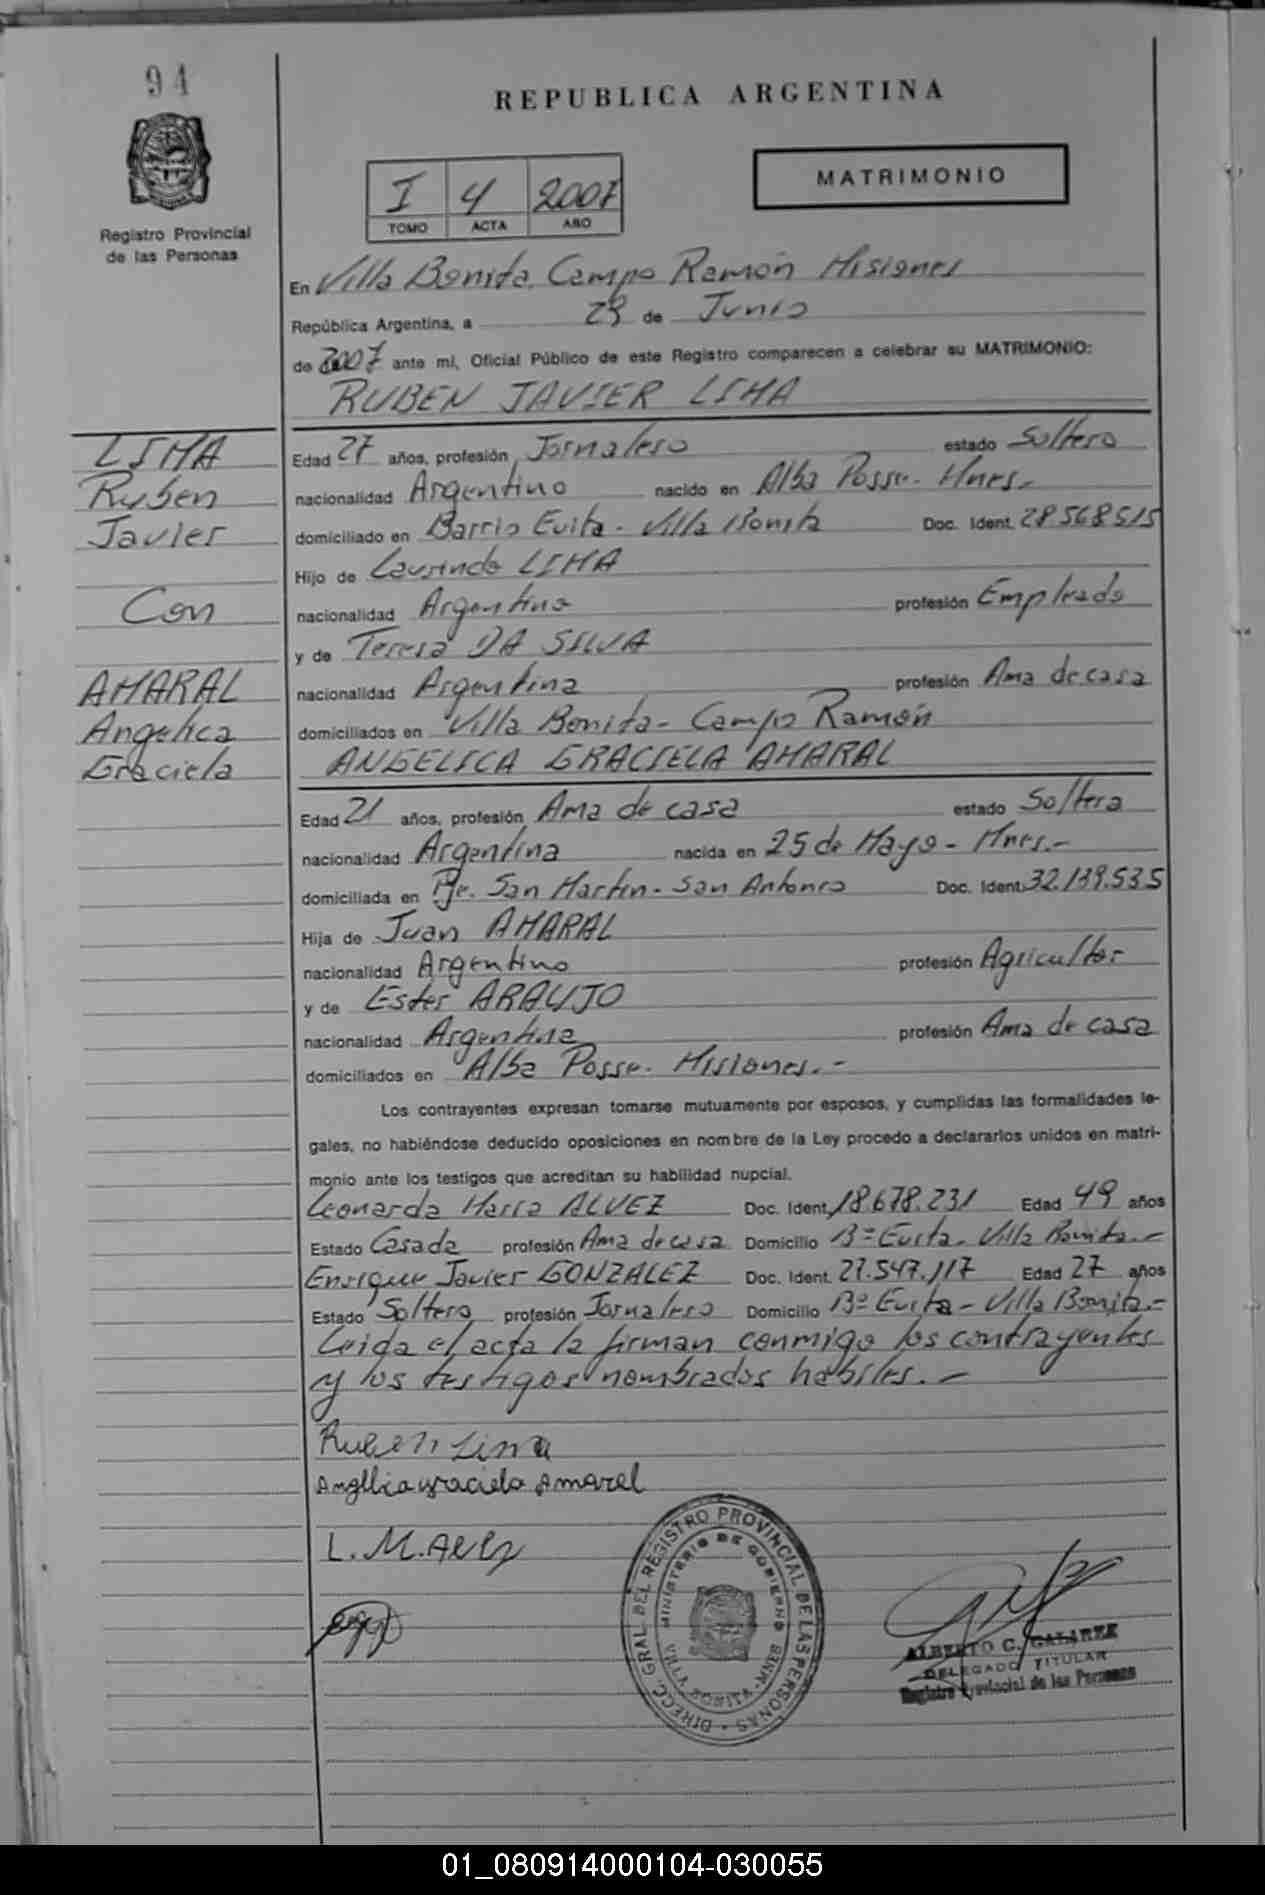 94
REPUBLICA ARGENTINA
Registro Provincial
de las Personas
I 4 2007
TOMO ACTA AÑO
MATRIMONIO
En Villa Bonita, Campo Ramón Misiones
República Argentina, a 29 de Junio
de 2007 ante mí, Oficial Público de este Registro comparecen a celebrar su MATRIMONIO:
RUBEN JAVIER LIMA
LIMA
Ruben
Javier
Con
AMARAL
Angelica
Graciela
Edad 27 años, profesión Jornalero estado Soltero
nacionalidad Argentino nacido en Alba Posse- Mnes.
domiciliado en Barrio Evita - Villa Bonita Doc. Ident. 28.568.515
Hijo de Laurindo LIMA
nacionalidad Argentino profesión Empleado
y de Teresa DA SILVA
nacionalidad Argentina profesión Ama de casa
domiciliados en Villa Bonita- Campo Ramón
ANGELICA GRACIELA AMARAL
Edad 21 años, profesión Ama de casa estado Soltera
nacionalidad Argentina nacida en 25 de Mayo - Mnes.-
domiciliada en Pje. San Martin- San Antonio Doc. Ident. 32.139.535
Hija de Juan AMARAL
nacionalidad Argentino profesión Agricultor
y de Ester ARAUJO
nacionalidad Argentina profesión Ama de casa
domiciliados en Alba Posse- Misiones.-
Los contrayentes expresan tomarse mutuamente por esposos, y cumplidas las formalidades le-
gales, no habiéndose deducido oposiciones en nombre de la Ley procedo a declararlos unidos en matri-
monio ante los testigos que acreditan su habilidad nupcial.
Leonarda Maria ALVEZ Doc. Ident. 18.678.231 Edad 49 años
Estado Casada profesión Ama de casa Domicilio Bº Evita- Villa Bonita.-
Enrique Javier GONZALEZ Doc. Ident. 27.547.117 Edad 27 años
Estado Soltero profesión Jornalero Domicilio Bº Evita - Villa Bonita.-
Leida el acta la firman conmigo los contrayentes
y los testigos nombrados habiles.-
Ruben Lima
Angelica graciela Amarel
L. M. Alvez
DIRECC. GRAL. DEL REGISTRO PROVINCIAL DE LAS PERSONAS
MINISTERIO DE GOBIERNO
VILLA BONITA - MNES
ALBERTO C. GALARZA
DELEGADO TITULAR
Registro Provincial de las Personas
01_080914000104-030055